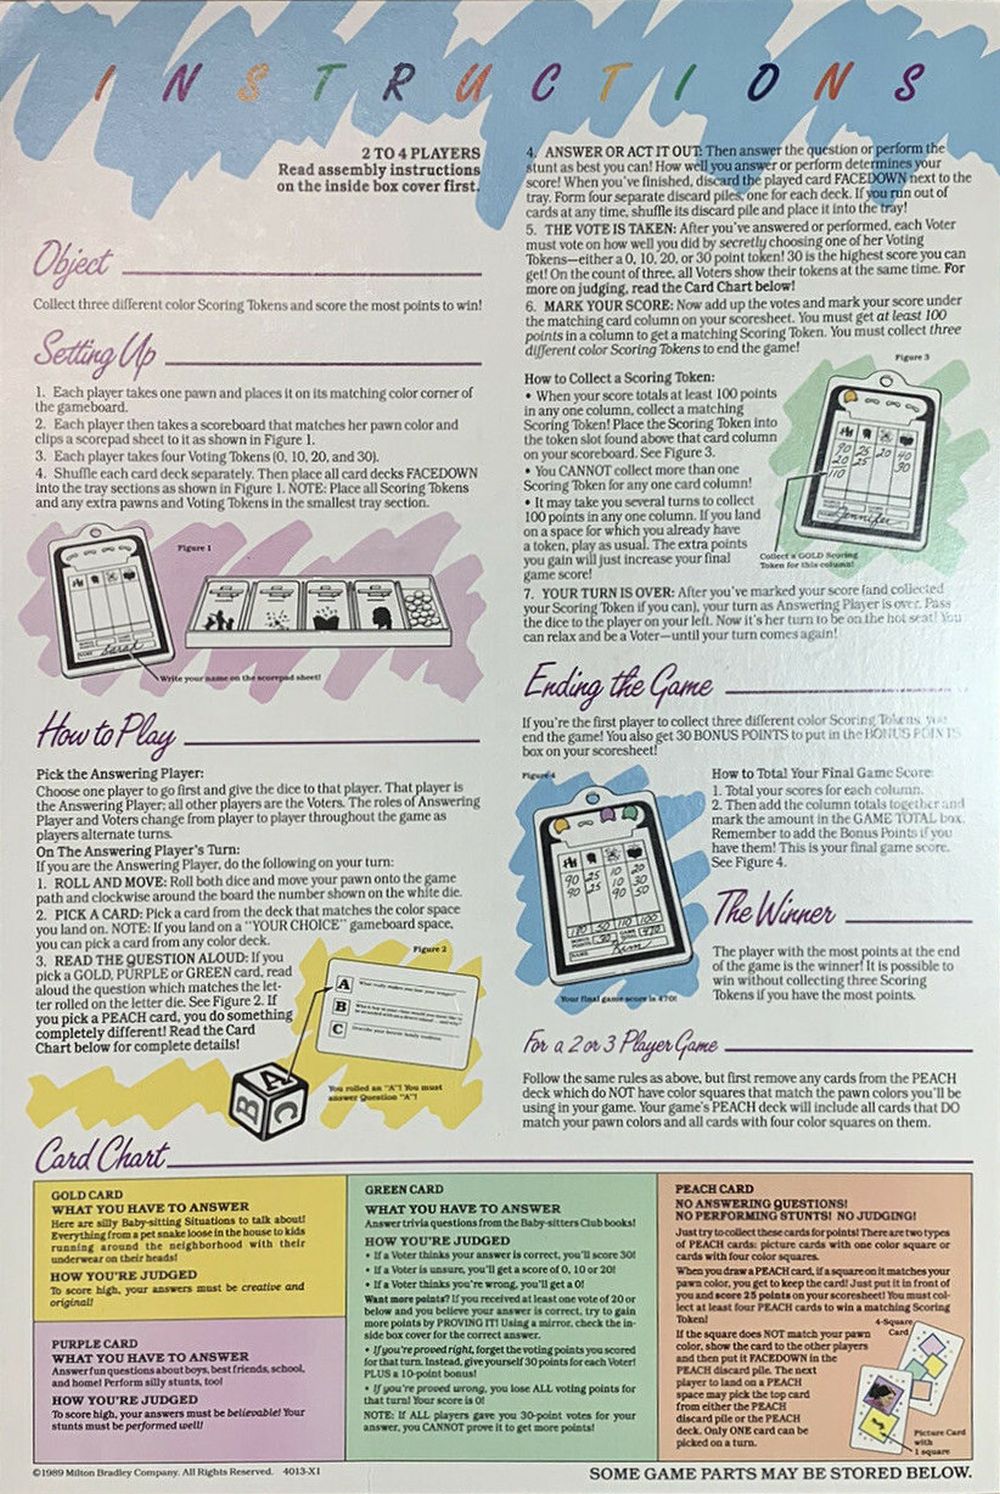 INSTRUCTIONS
2 TO 4 PLAYERS
Read assembly instructions
on the inside box cover first.
Object
Collect three different color Scoring Tokens and score the most points to win!
Setting Up
1. Each player takes one pawn and places it on its matching color corner of
the gameboard.
2. Each player then takes a scoreboard that matches her pawn color and
clips a scorepad sheet to it as shown in Figure 1.
3. Each player takes four Voting Tokens (0, 10, 20, and 30).
4. Shuffle each card deck separately. Then place all card decks FACEDOWN
into the tray sections as shown in Figure 1. NOTE: Place all Scoring Tokens
and any extra pawns and Voting Tokens in the smallest tray section.
Figure 1
Sarah
Write your name on the scorepad sheet!
How to Play
Pick the Answering Player:
Choose one player to go first and give the dice to that player. That player is
the Answering Player; all other players are the Voters. The roles of Answering
Player and Voters change from player to player throughout the game as
players alternate turns.
On The Answering Player's Turn:
If you are the Answering Player, do the following on your turn:
1. ROLL AND MOVE: Roll both dice and move your pawn onto the game
path and clockwise around the board the number shown on the white die.
2. PICK A CARD: Pick a card from the deck that matches the color space
you land on. NOTE: If you land on a "YOUR CHOICE" gameboard space,
you can pick a card from any color deck.
3. READ THE QUESTION ALOUD: If you
pick a GOLD, PURPLE or GREEN card, read
aloud the question which matches the let-
ter rolled on the letter die. See Figure 2. If
you pick a PEACH card, you do something
completely different! Read the Card
Chart below for complete details!
Figure 2
A
B
C
A
B
C
You rolled an "A"! You must
answer Question "A"!
4. ANSWER OR ACT IT OUT: Then answer the question or perform the
stunt as best you can! How well you answer or perform determines your
score! When you've finished, discard the played card FACEDOWN next to the
tray. Form four separate discard piles, one for each deck. If you run out of
cards at any time, shuffle its discard pile and place it into the tray!
5. THE VOTE IS TAKEN: After you've answered or performed, each Voter
must vote on how well you did by secretly choosing one of her Voting
Tokens—either a 0, 10, 20, or 30 point token! 30 is the highest score you can
get! On the count of three, all Voters show their tokens at the same time. For
more on judging, read the Card Chart below!
6. MARK YOUR SCORE: Now add up the votes and mark your score under
the matching card column on your scoresheet. You must get at least 100
points in a column to get a matching Scoring Token. You must collect three
different color Scoring Tokens to end the game!
Figure 3
How to Collect a Scoring Token:
• When your score totals at least 100 points
in any one column, collect a matching
Scoring Token! Place the Scoring Token into
the token slot found above that card column
on your scoreboard. See Figure 3.
• You CANNOT collect more than one
Scoring Token for any one card column!
• It may take you several turns to collect
100 points in any one column. If you land
on a space for which you already have
a token, play as usual. The extra points
you gain will just increase your final
game score!
90 25 20 40
20 25 90
110
Jennifer
Collect a GOLD Scoring
Token for this column!
7. YOUR TURN IS OVER: After you've marked your score (and collected
your Scoring Token if you can), your turn as Answering Player is over. Pass
the dice to the player on your left. Now it's her turn to be on the hot seat! You
can relax and be a Voter—until your turn comes again!
Ending the Game
If you're the first player to collect three different color Scoring Tokens, you
end the game! You also get 30 BONUS POINTS to put in the BONUS POINTS
box on your scoresheet!
Figure 4
90 25 10 20
90 25 10 30
90 50
180 50 110 100
30 470
Kim
Your final game score is 470!
How to Total Your Final Game Score:
1. Total your scores for each column.
2. Then add the column totals together and
mark the amount in the GAME TOTAL box.
Remember to add the Bonus Points if you
have them! This is your final game score.
See Figure 4.
The Winner
The player with the most points at the end
of the game is the winner! It is possible to
win without collecting three Scoring
Tokens if you have the most points.
For a 2 or 3 Player Game
Follow the same rules as above, but first remove any cards from the PEACH
deck which do NOT have color squares that match the pawn colors you'll be
using in your game. Your game's PEACH deck will include all cards that DO
match your pawn colors and all cards with four color squares on them.
Card Chart
GOLD CARD
WHAT YOU HAVE TO ANSWER
Here are silly Baby-sitting Situations to talk about!
Everything from a pet snake loose in the house to kids
running around the neighborhood with their
underwear on their heads!
HOW YOU'RE JUDGED
To score high, your answers must be creative and
original!
PURPLE CARD
WHAT YOU HAVE TO ANSWER
Answer fun questions about boys, best friends, school,
and home! Perform silly stunts, too!
HOW YOU'RE JUDGED
To score high, your answers must be believable! Your
stunts must be performed well!
GREEN CARD
WHAT YOU HAVE TO ANSWER
Answer trivia questions from the Baby-sitters Club books!
HOW YOU'RE JUDGED
• If a Voter thinks your answer is correct, you'll score 30!
• If a Voter is unsure, you'll get a score of 0, 10 or 20!
• If a Voter thinks you're wrong, you'll get a 0!
Want more points? If you received at least one vote of 20 or
below and you believe your answer is correct, try to gain
more points by PROVING IT! Using a mirror, check the in-
side box cover for the correct answer.
• If you're proved right, forget the voting points you scored
for that turn. Instead, give yourself 30 points for each Voter!
PLUS a 10-point bonus!
• If you're proved wrong, you lose ALL voting points for
that turn! Your score is 0!
NOTE: If ALL players gave you 30-point votes for your
answer, you CANNOT prove it to get more points!
PEACH CARD
NO ANSWERING QUESTIONS!
NO PERFORMING STUNTS! NO JUDGING!
Just try to collect these cards for points! There are two types
of PEACH cards: picture cards with one color square or
cards with four color squares.
When you draw a PEACH card, if a square on it matches your
pawn color, you get to keep the card! Just put it in front of
you and score 25 points on your scoresheet! You must col-
lect at least four PEACH cards to win a matching Scoring
Token!
If the square does NOT match your pawn
color, show the card to the other players
and then put it FACEDOWN in the
PEACH discard pile. The next
player to land on a PEACH
space may pick the top card
from either the PEACH
discard pile or the PEACH
deck. Only ONE card can be
picked on a turn.
4-Square
Card
Picture Card
with
1 square
©1989 Milton Bradley Company. All Rights Reserved. 4013-X1
SOME GAME PARTS MAY BE STORED BELOW.